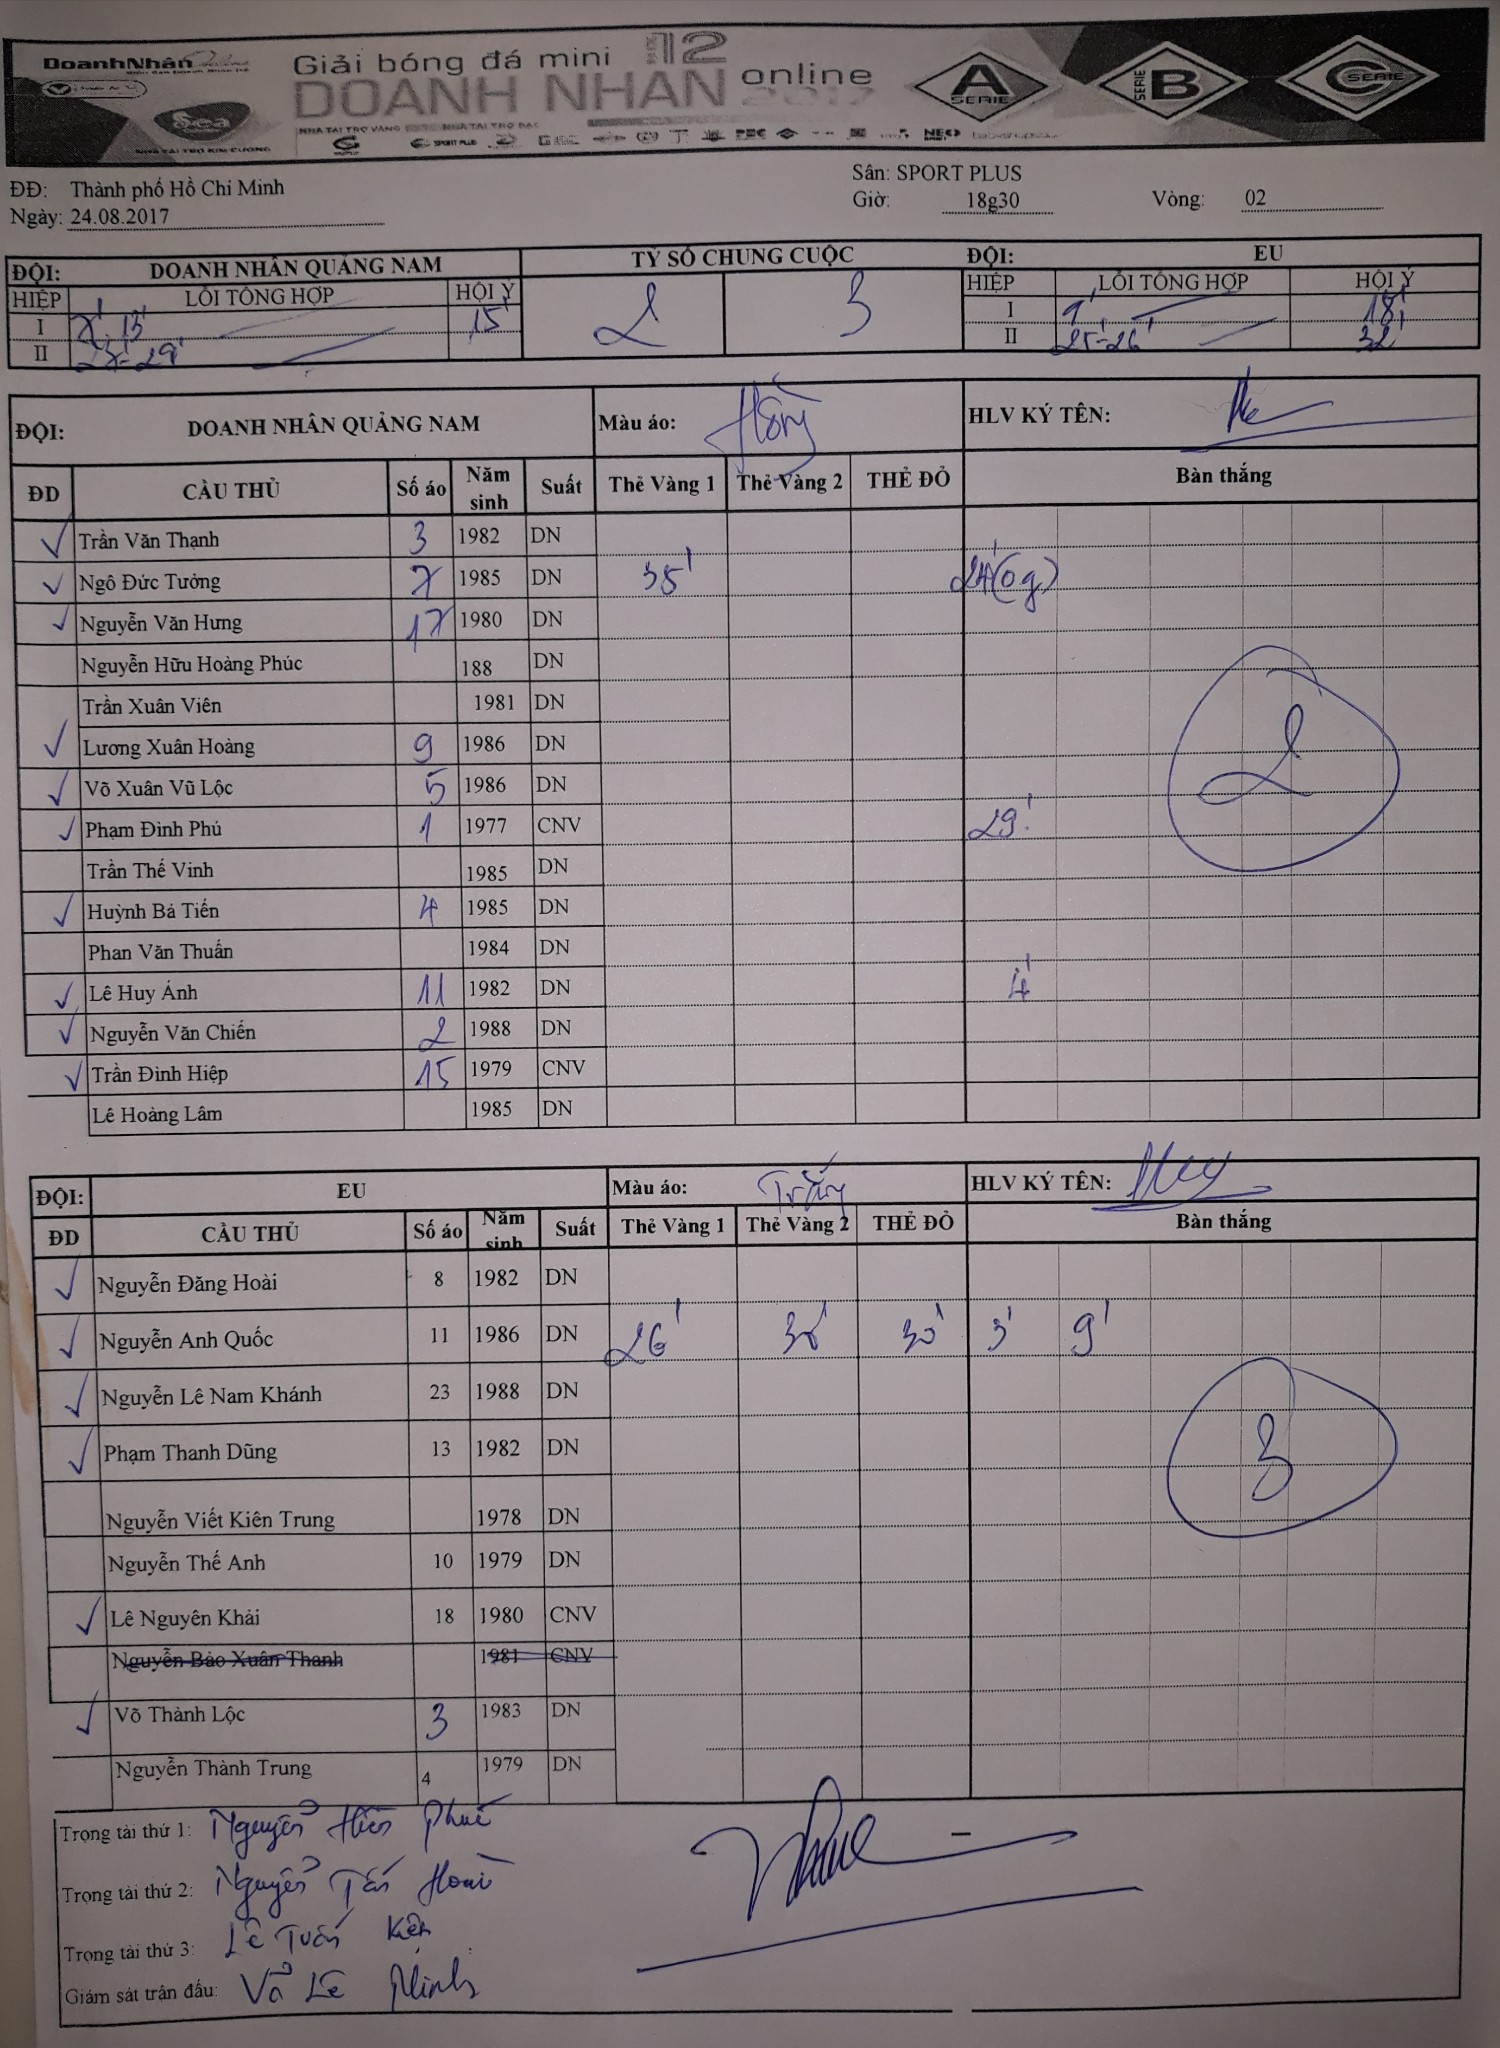 DoanhNhân Online
Giải bóng đá mini
12
DOANH NHÂN online 2017
Sea
NHÀ TÀI TRỢ KIM CƯƠNG
NHÀ TÀI TRỢ VÀNG
NHÀ TÀI TRỢ BẠC
SPORT PLUS
NEO
A SERIE
SERIE B
C SERIE
ĐĐ: Thành phố Hồ Chí Minh
Sân: SPORT PLUS
Ngày: 24.08.2017
Giờ: 18g30
Vòng: 02
ĐỘI: DOANH NHÂN QUẢNG NAM TỶ SỐ CHUNG CUỘC ĐỘI: EU
HIỆP LỖI TỔNG HỢP HỘI Ý 2 3 HIỆP LỖI TỔNG HỢP HỘI Ý
I 7' 13' 15' I 9' 18'
II 27'-29' II 25'-26' 32'
ĐỘI: DOANH NHÂN QUẢNG NAM Màu áo: Hồng HLV KÝ TÊN:
ĐD CẦU THỦ Số áo Năm sinh Suất Thẻ Vàng 1 Thẻ Vàng 2 THẺ ĐỎ Bàn thắng
Trần Văn Thạnh 3 1982 DN
Ngô Đức Tưởng 7 1985 DN 35' 24'(og)
Nguyễn Văn Hưng 17 1980 DN
Nguyễn Hữu Hoàng Phúc 188 DN
Trần Xuân Viên 1981 DN
Lương Xuân Hoàng 9 1986 DN
2
Võ Xuân Vũ Lộc 5 1986 DN
Phạm Đình Phú 1 1977 CNV 29'
Trần Thế Vinh 1985 DN
Huỳnh Bá Tiến 4 1985 DN
Phan Văn Thuấn 1984 DN
Lê Huy Ánh 11 1982 DN 4'
Nguyễn Văn Chiến 2 1988 DN
Trần Đình Hiệp 15 1979 CNV
Lê Hoàng Lâm 1985 DN
ĐỘI: EU Màu áo: Trắng HLV KÝ TÊN:
ĐD CẦU THỦ Số áo Năm sinh Suất Thẻ Vàng 1 Thẻ Vàng 2 THẺ ĐỎ Bàn thắng
Nguyễn Đăng Hoài 8 1982 DN
Nguyễn Anh Quốc 11 1986 DN 26' 30' 30' 3' 9'
Nguyễn Lê Nam Khánh 23 1988 DN
Phạm Thanh Dũng 13 1982 DN
3
Nguyễn Viết Kiên Trung 1978 DN
Nguyễn Thế Anh 10 1979 DN
Lê Nguyên Khải 18 1980 CNV
Nguyễn Bảo Xuân Thanh 1981 CNV
Võ Thành Lộc 3 1983 DN
Nguyễn Thành Trung 4 1979 DN
Trọng tài thứ 1: Nguyễn Hiền Phúc
Trọng tài thứ 2: Nguyễn Tấn Hoài
Trọng tài thứ 3: Lê Tuấn Kiện
Giám sát trận đấu: Võ Lê Minh